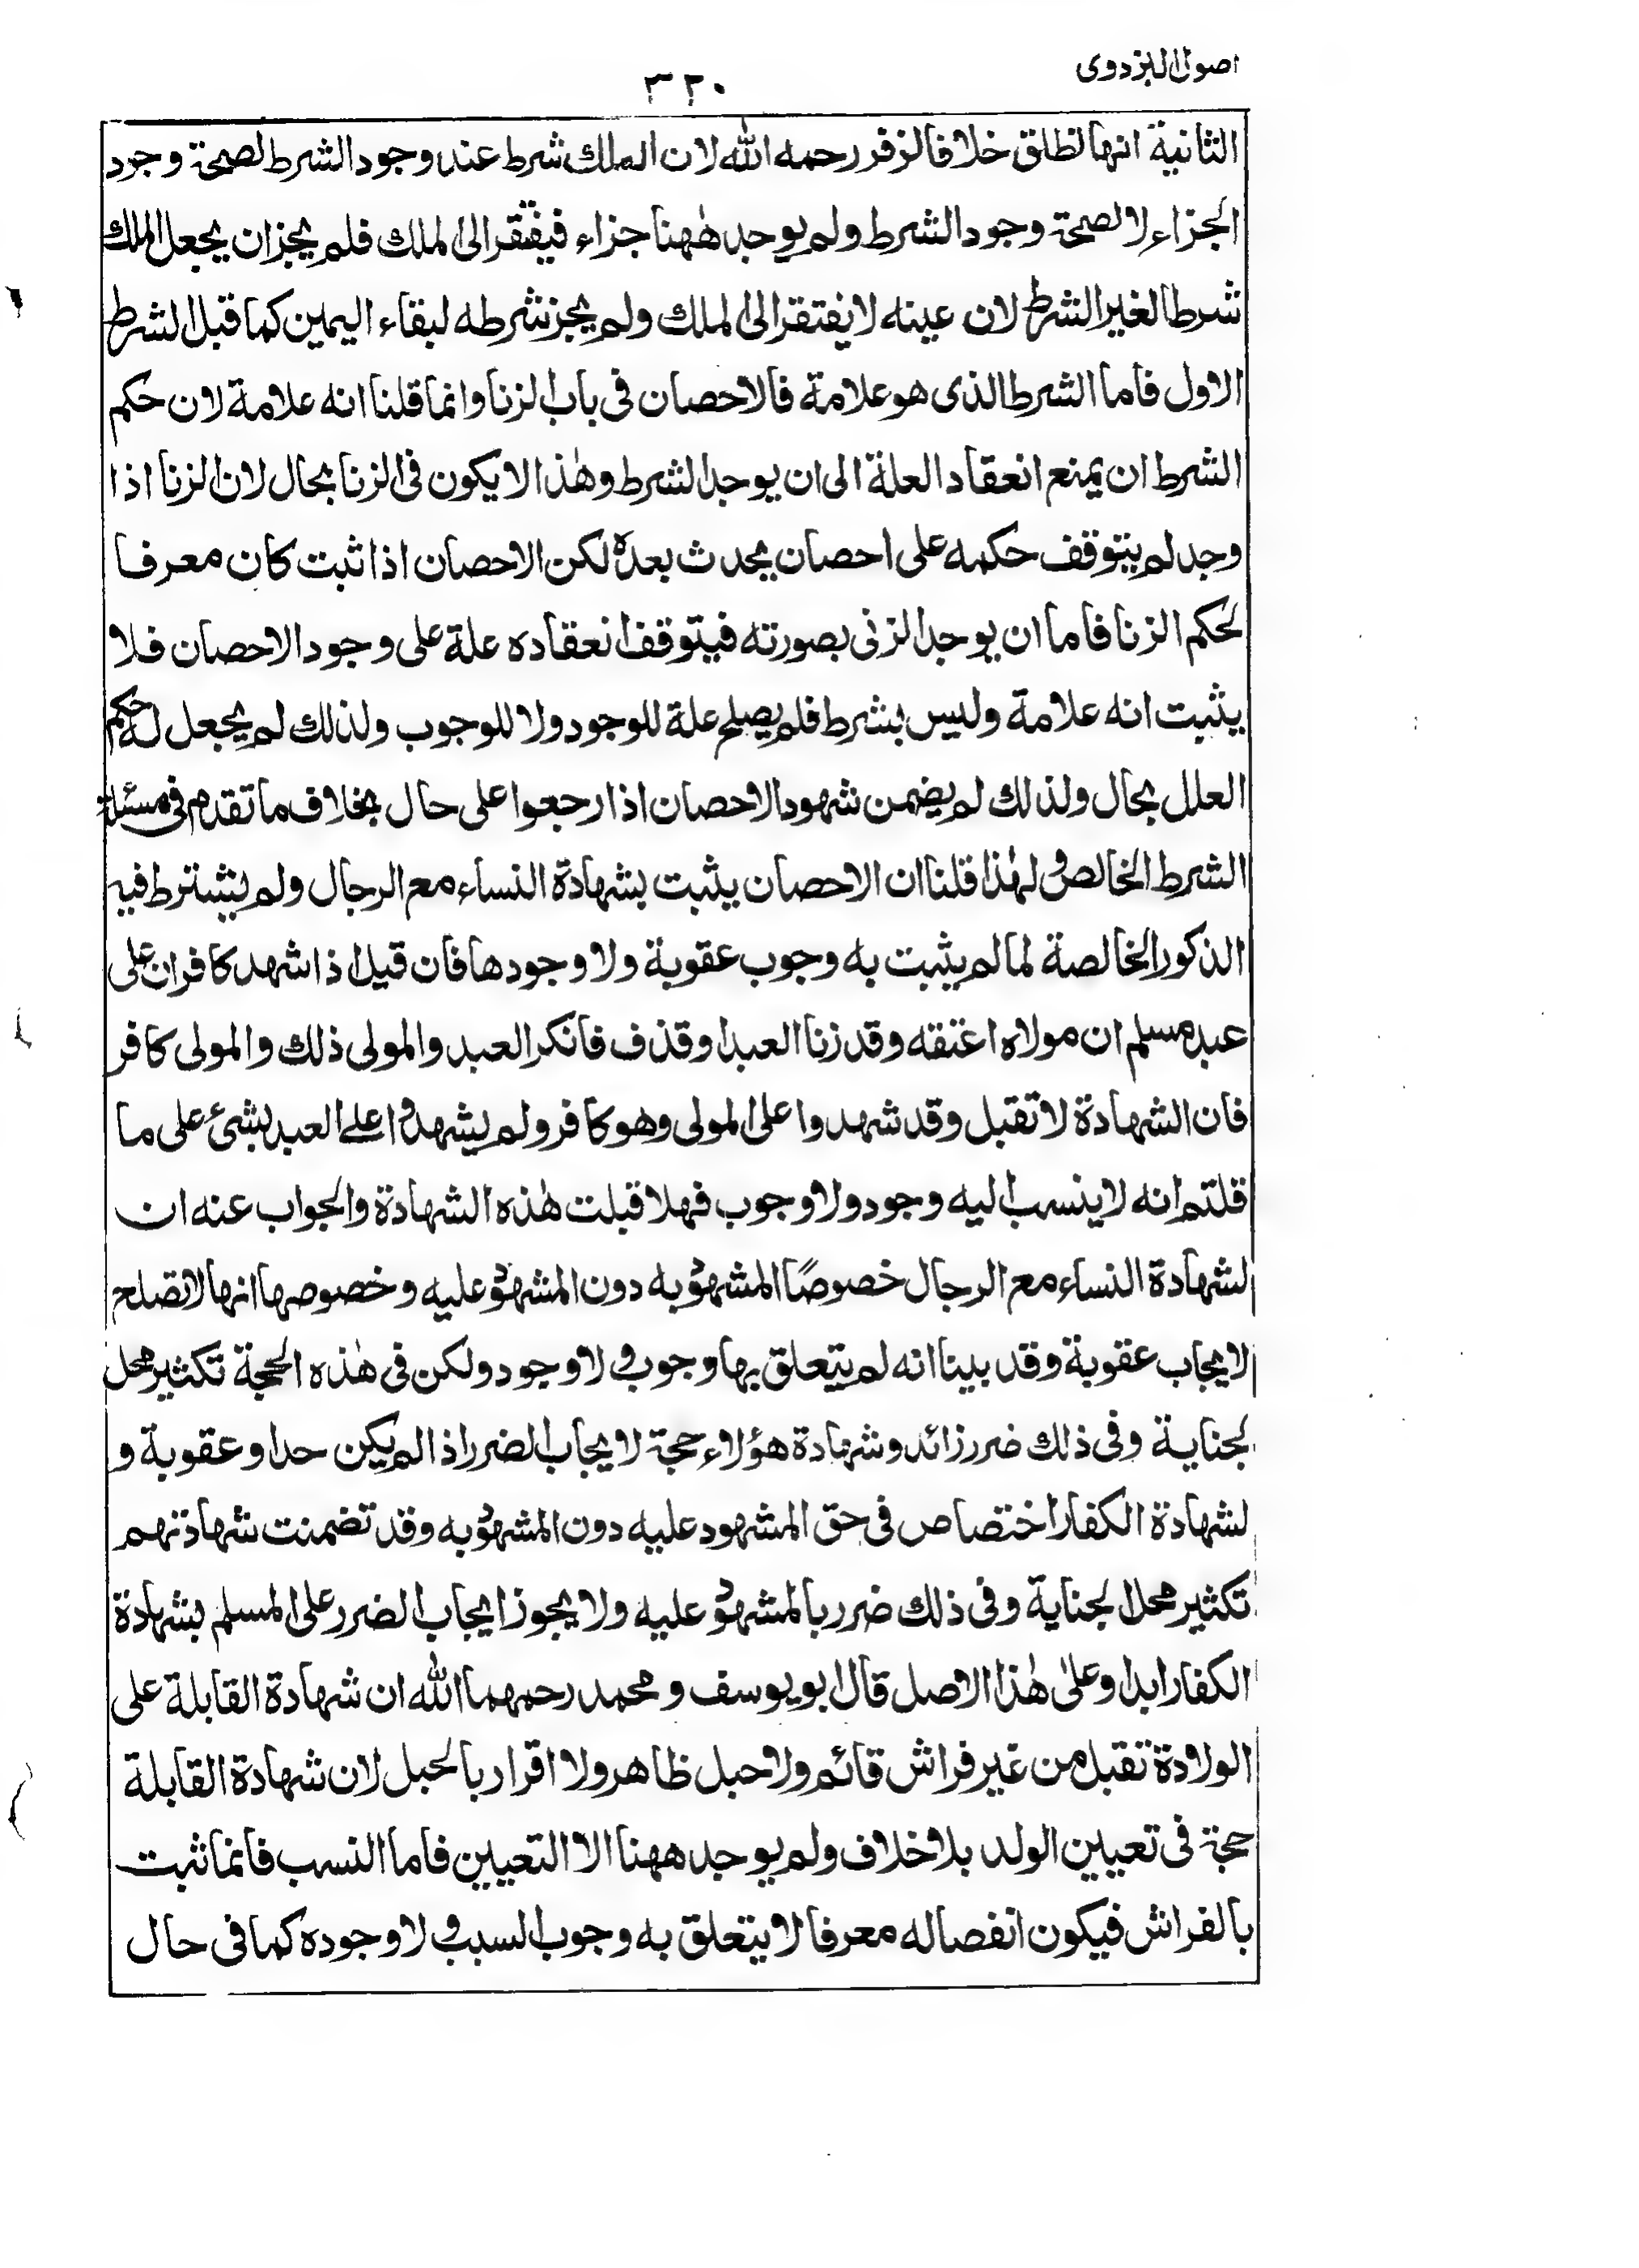 اصول البزدوی
۳۲۰
الثانية انها تطلق خلافا لزفر رحمه الله لان الملك شرط عند وجود الشرط لصحة وجود
الجزاء لا لصحة وجود الشرط ولم يوجد هٰهنا جزاء فيفتقر الى الملك فلم يجز ان يجعل الملك
شرطا لغير الشرط لان عينه لا يفتقر الى الملك ولم يجز شرطه لبقاء اليمين كما قبل الشرط
الاول فاما الشرط الذى هو علامة فالاحصان فى باب الزنا وانما قلنا انه علامة لان حكم
الشرط ان يمنع انعقاد العلة الى ان يوجد الشرط وهٰذا لا يكون فى الزنا بحال لان الزنا اذا
وجد لم يتوقف حكمه على احصان يحدث بعده لكن الاحصان اذا ثبت كان معرفا
لحكم الزنا فاما ان يوجد الزنى بصورته فيتوقف انعقاده علة على وجود الاحصان فلا
يثبت انه علامة وليس بشرط فلم يصلح علة للوجود ولا للوجوب ولذلك لم يجعل له حكم
العلل بحال ولذلك لم يضمن شهود الاحصان اذا رجعوا على حال بخلاف ما تقدم فى مسئلة
الشرط الخالص ولهٰذا قلنا ان الاحصان يثبت بشهادة النساء مع الرجال ولم يشترط فيه
الذكور الخالصة لما لم يثبت به وجوب عقوبة ولا وجودها فان قيل اذا شهد كافران على
عبد مسلم ان مولاه اعتقه وقد زنا العبد او قذف فانكر العبد والمولى ذلك والمولى كافر
فان الشهادة لا تقبل وقد شهدوا على المولى وهو كافر ولم يشهدوا على العبد بشئ على ما
قلتم انه لا ينسب اليه وجود ولا وجوب فهلا قبلت هٰذه الشهادة والجواب عنه ان
لشهادة النساء مع الرجال خصوصًا المشهود به دون المشهود عليه وخصوصها انها لا تصلح
لايجاب عقوبة وقد بينا انه لم يتعلق بها وجوب ولا وجود ولكن فى هٰذه الحجة تكثير محل
الجناية وفى ذلك ضرر زائد وشهادة هؤلاء حجة لايجاب الضرر اذا لم يكن حدا وعقوبة و
لشهادة الكفار اختصاص فى حق المشهود عليه دون المشهود به وقد تضمنت شهادتهم
تكثير محل الجناية وفى ذلك ضرر بالمشهود عليه ولا يجوز ايجاب الضرر على المسلم بشهادة
الكفار ابدا وعلىٰ هٰذا الاصل قال ابو يوسف ومحمد رحمهما الله ان شهادة القابلة على
الولادة تقبل من غير فراش قائم ولا حبل ظاهر ولا اقرار بالحبل لان شهادة القابلة
حجة فى تعيين الولد بلا خلاف ولم يوجد ههنا الا التعيين فاما النسب فانما ثبت
بالفراش فيكون انفصاله معرفا لا يتعلق به وجوب النسب ولا وجوده كما فى حال